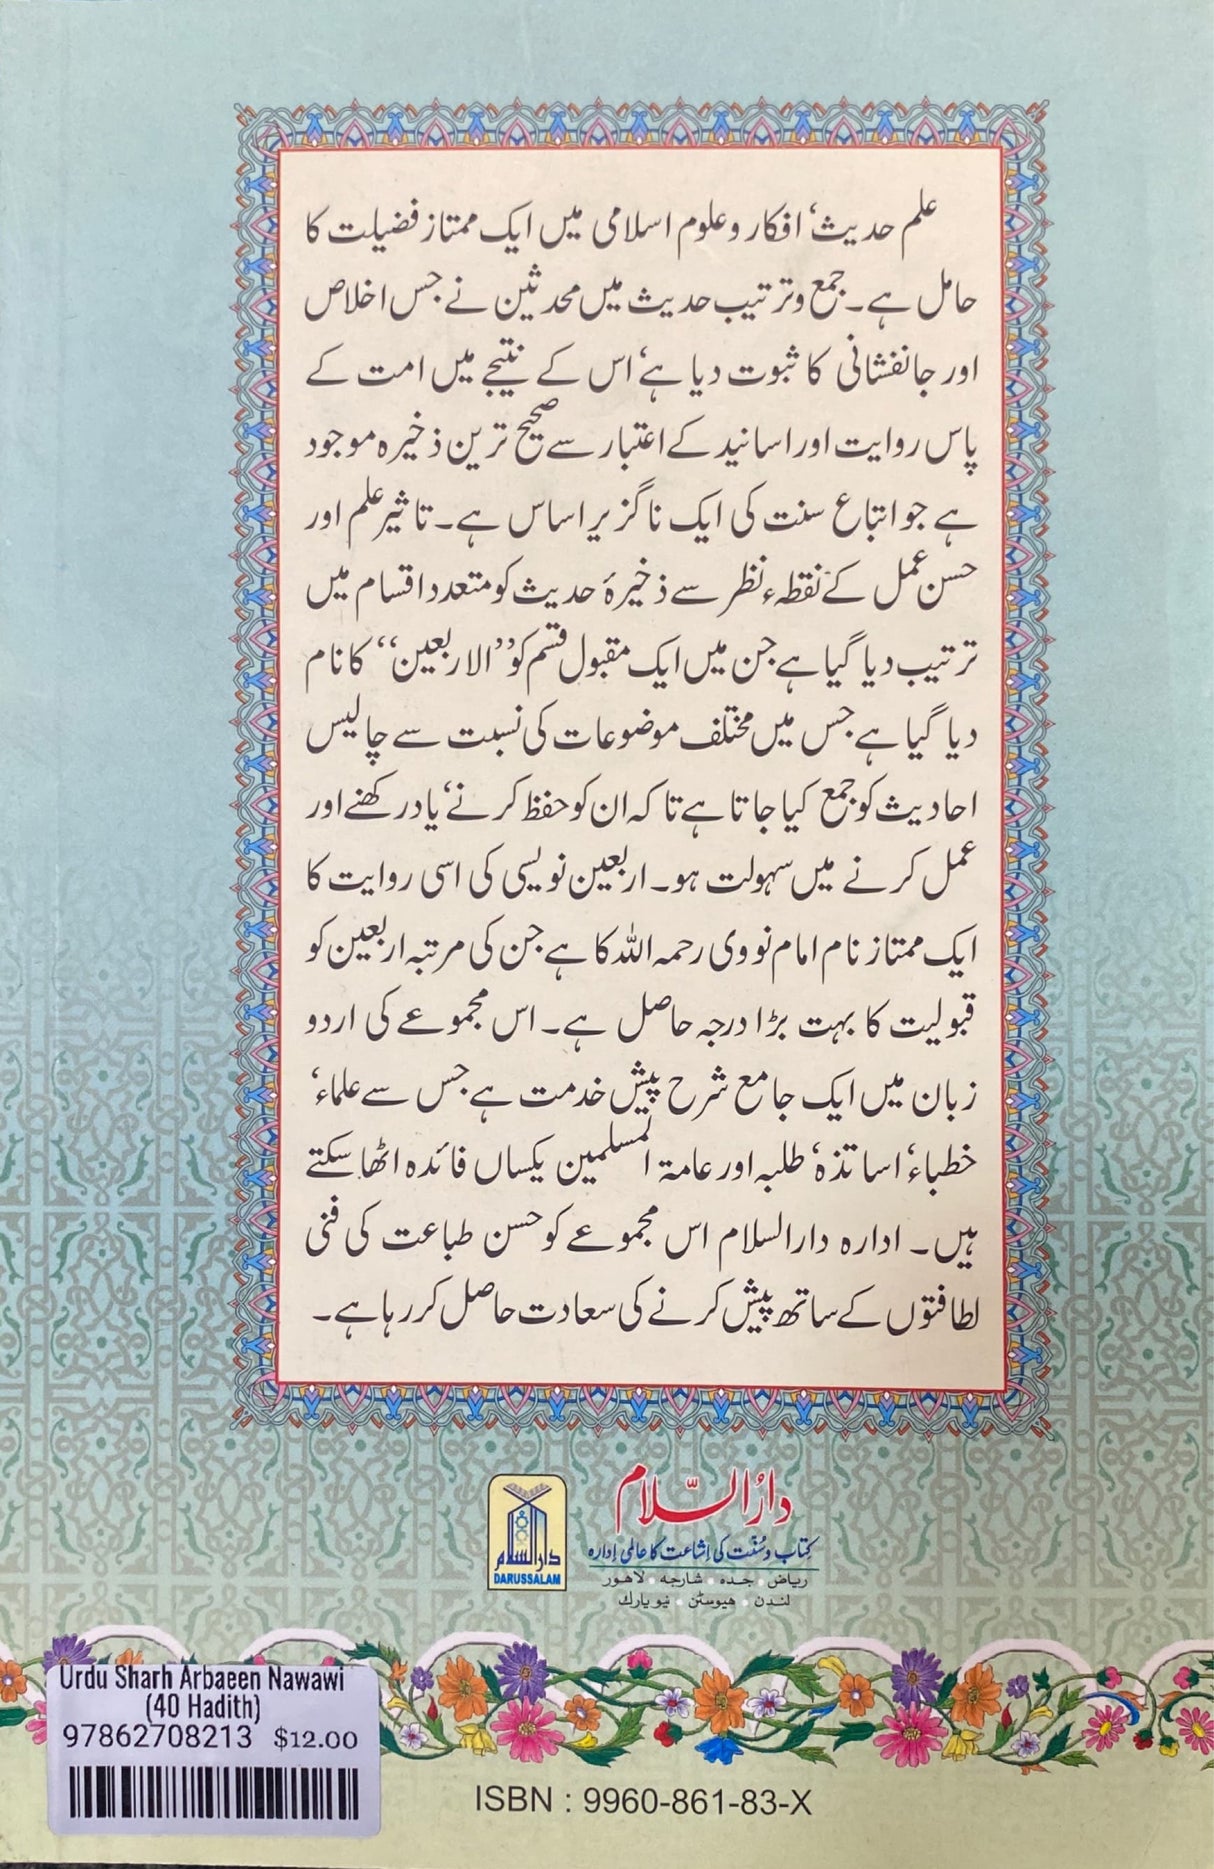 علم حدیث‘ افکار و علوم اسلامی میں ایک ممتاز فضیلت کا
حامل ہے۔ جمع و ترتیب حدیث میں محدثین نے جس اخلاص
اور جانفشانی کا ثبوت دیا ہے‘ اس کے نتیجے میں امت کے
پاس روایت اور اسانید کے اعتبار سے صحیح ترین ذخیرہ موجود
ہے جو اتباع سنت کی ایک ناگزیر اساس ہے۔ تاثیر علم اور
حسن عمل کے نقطہء نظر سے ذخیرۂ حدیث کو متعدد اقسام میں
ترتیب دیا گیا ہے جن میں ایک مقبول قسم کو ’’الاربعین‘‘ کا نام
دیا گیا ہے جس میں مختلف موضوعات کی نسبت سے چالیس
احادیث کو جمع کیا جاتا ہے تاکہ ان کو حفظ کرنے‘ یاد رکھنے اور
عمل کرنے میں سہولت ہو۔ اربعین نویسی کی اسی روایت کا
ایک ممتاز نام امام نووی رحمہ اللہ کا ہے جن کی مرتبہ اربعین کو
قبولیت کا بہت بڑا درجہ حاصل ہے۔ اس مجموعے کی اردو
زبان میں ایک جامع شرح پیش خدمت ہے جس سے علماء‘
خطباء‘ اساتذہ‘ طلبہ اور عامۃ المسلمین یکساں فائدہ اٹھا سکتے
ہیں۔ ادارہ دارالسلام اس مجموعے کو حسن طباعت کی فنی
لطافتوں کے ساتھ پیش کرنے کی سعادت حاصل کر رہا ہے۔
دارُالسّلام
کتاب و سُنّت کی اشاعت کا عالمی ادارہ
ریاض • جدہ • شارجہ • لاہور
لندن • ہیوسٹن • نیویارک
دارالسلام
DARUSSALAM
Urdu Sharh Arbaeen Nawawi
(40 Hadith)
97862708213 $12.00
ISBN : 9960-861-83-X